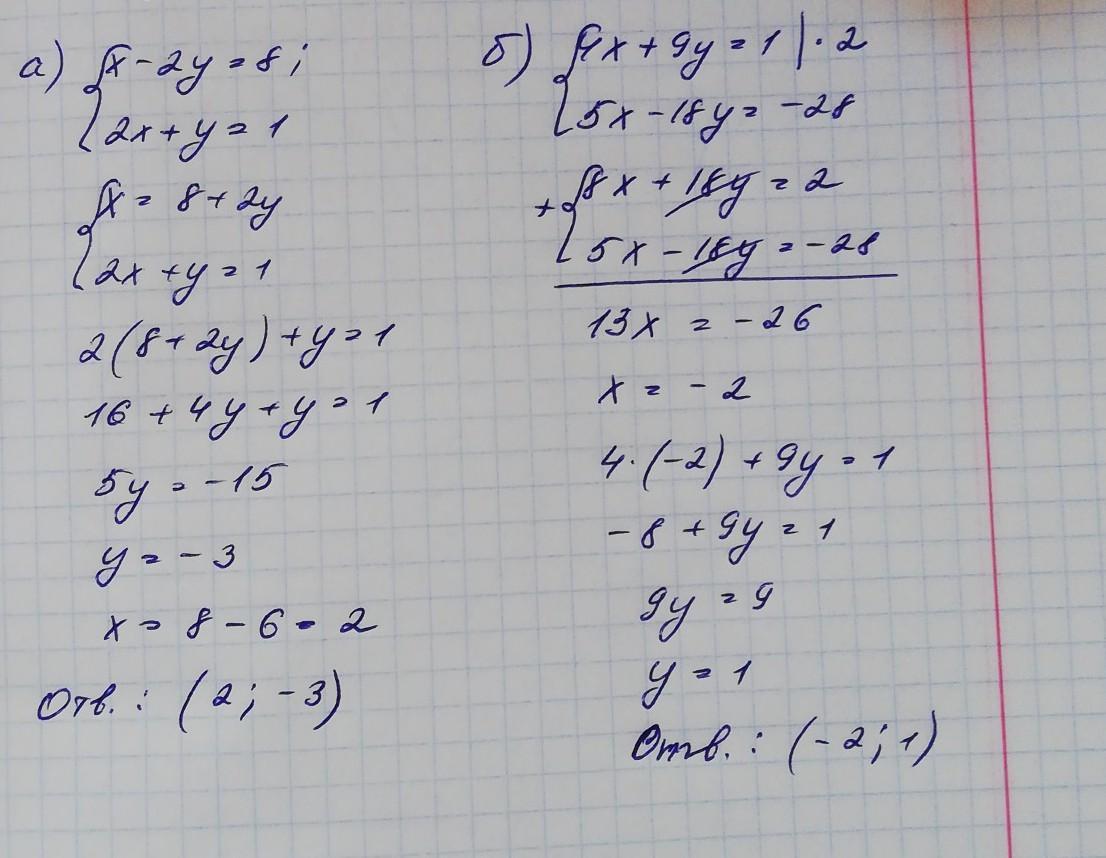 а) {x - 2y = 8;
2x + y = 1
{x = 8 + 2y
2x + y = 1
2(8 + 2y) + y = 1
16 + 4y + y = 1
5y = -15
y = -3
x = 8 - 6 = 2
Отв.: (2; -3)
б) {4x + 9y = 1 | · 2
5x - 18y = -28
+ {8x + 18y = 2
5x - 18y = -28
13x = -26
x = -2
4·(-2) + 9y = 1
-8 + 9y = 1
9y = 9
y = 1
Отв.: (-2; 1)